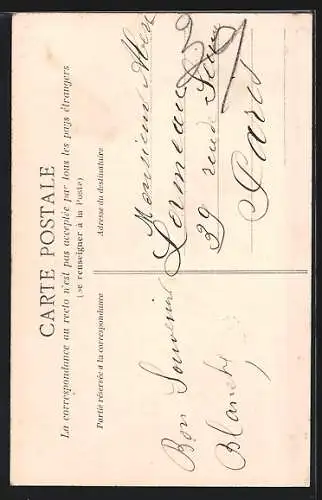 CARTE POSTALE
La correspondance au recto n'est pas acceptée par tous les pays étrangers.
(se renseigner à la Poste)
Partie réservée à la correspondance
Adresse du destinataire
Bon Souvenir
Blanche
Monsieur
29 rue de
Paris